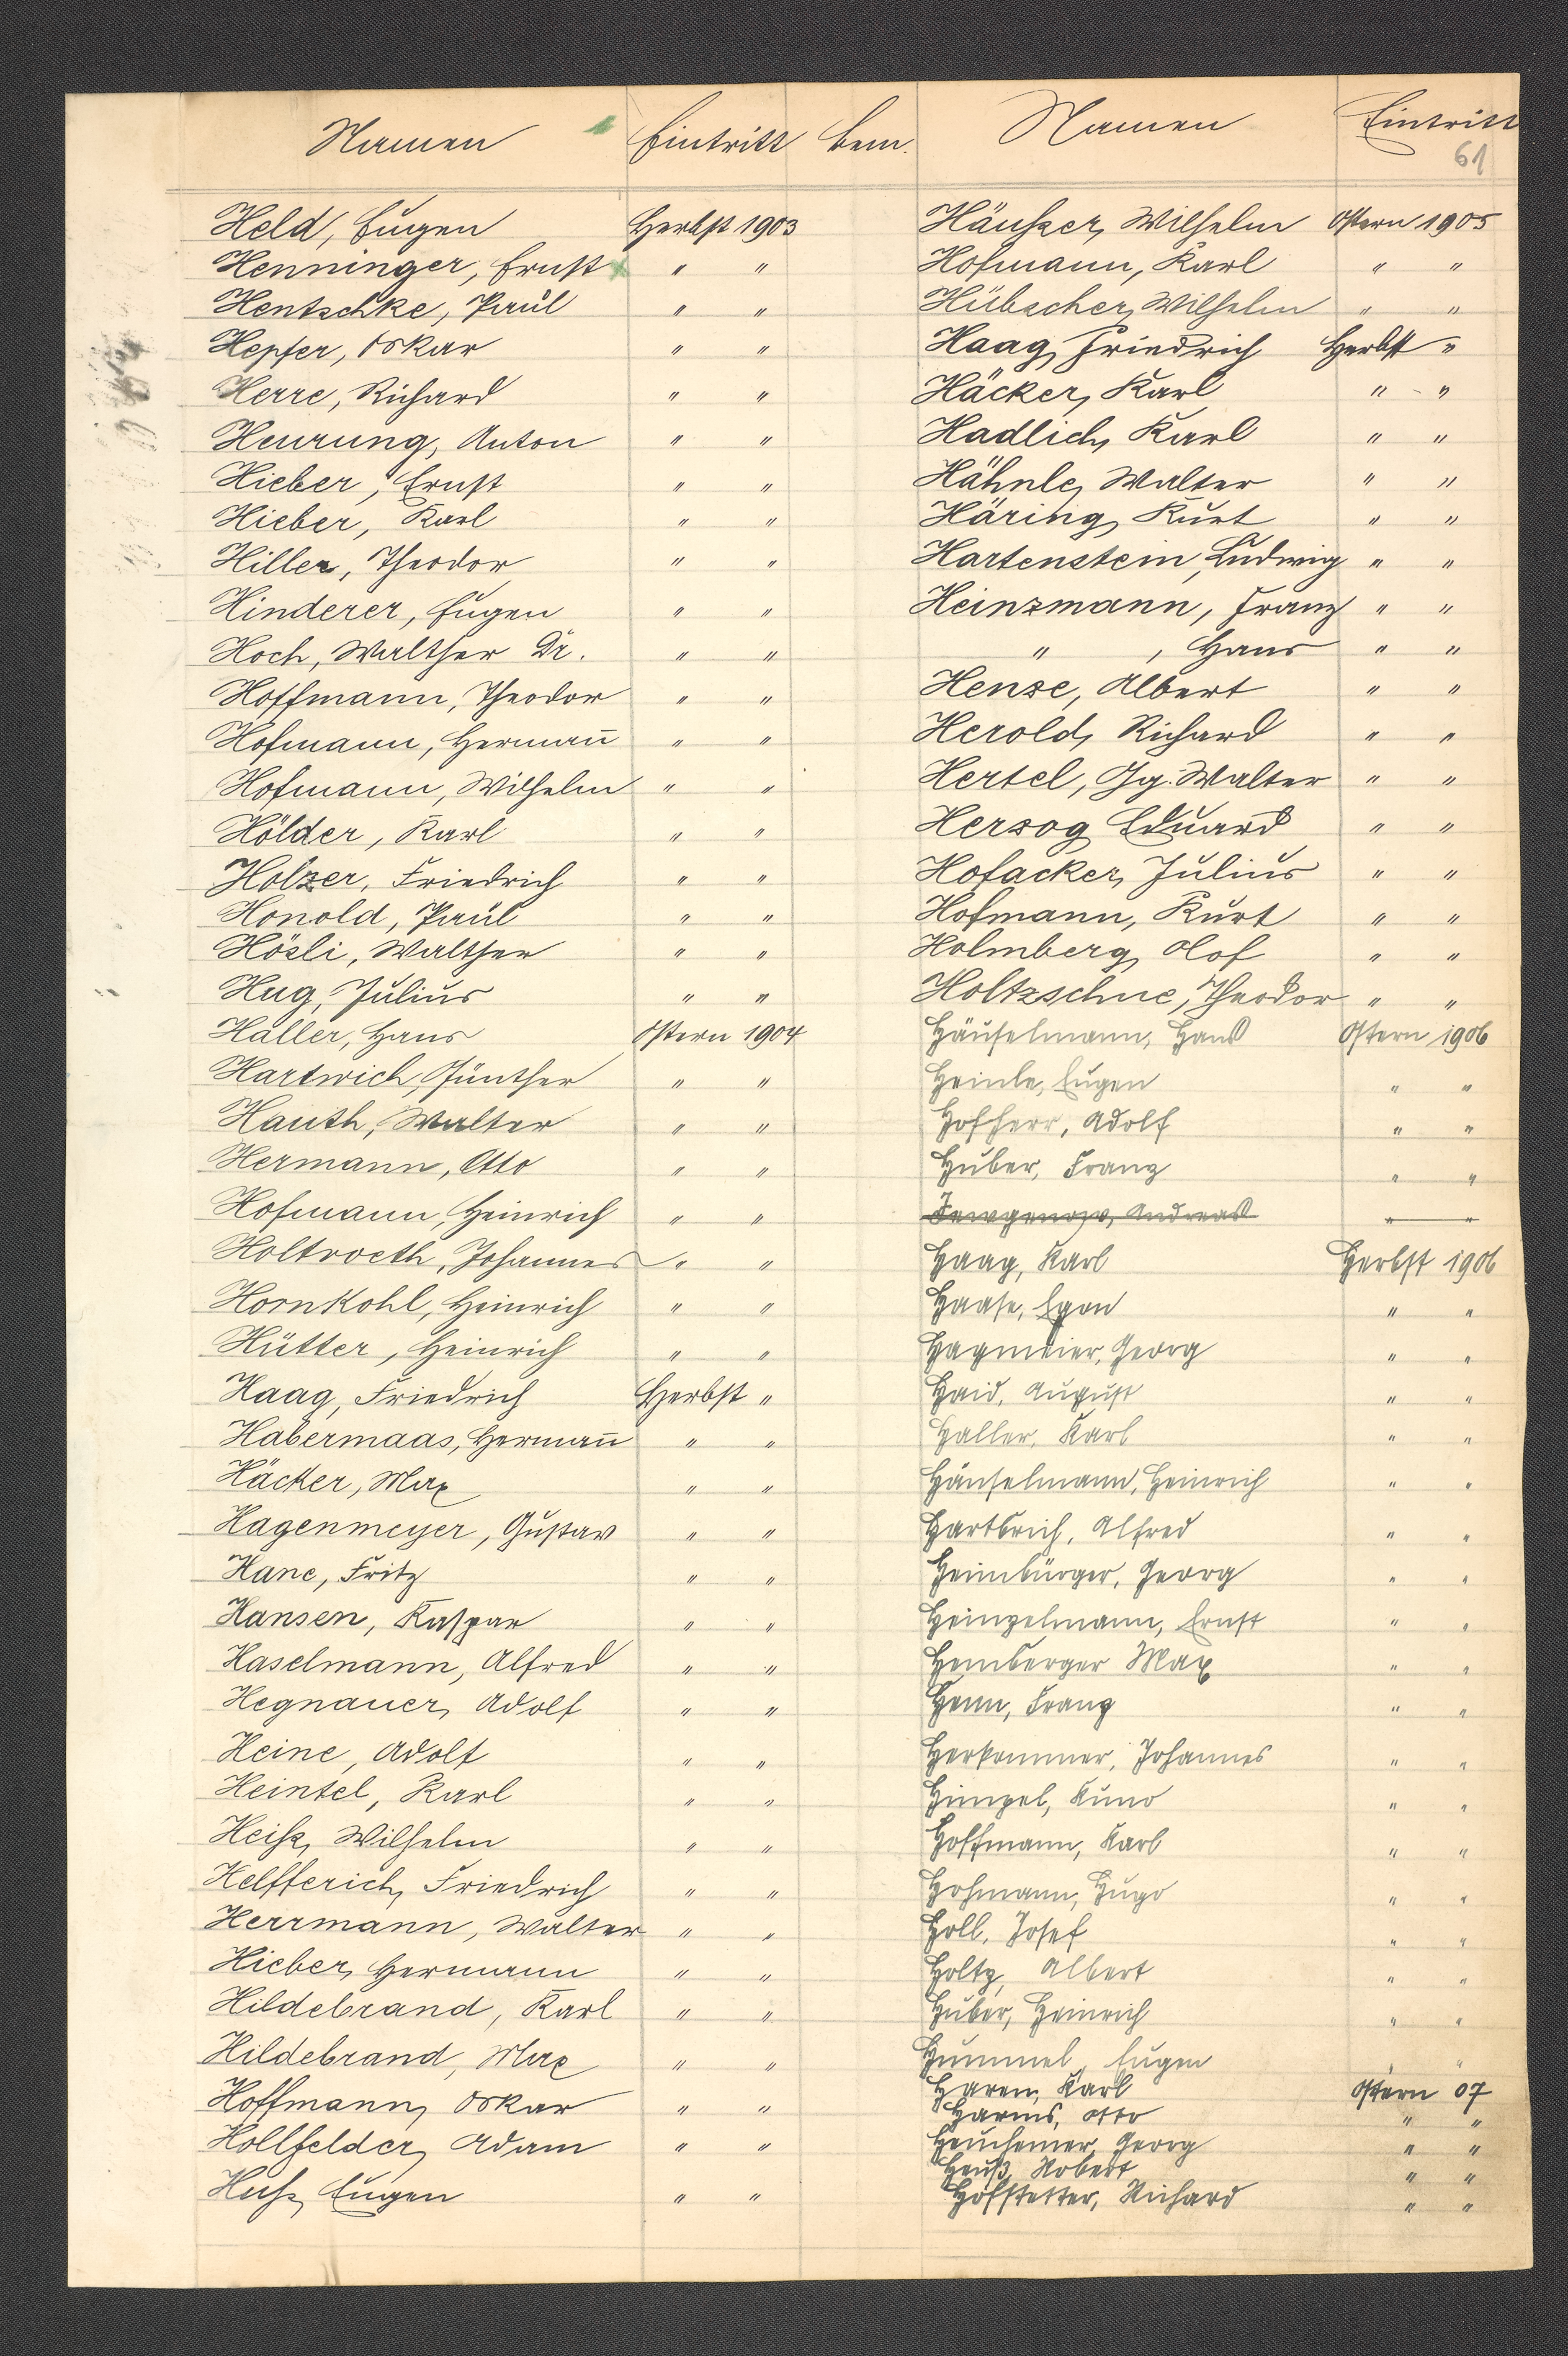 Namen Eintritt bem.
Held, Eugen Herbst 1903
Henninger, Ernst " "
Hentschke, Paul " "
Hepfer, Oskar " "
Herre, Richard " "
Heurung, Anton " "
Hieber, Ernst " "
Hieber, Karl " "
Hiller, Theodor " "
Hinderer, Eugen " "
Hoch, Walther Dr. " "
Hoffmann, Theodor " "
Hofmann, Hermañ " "
Hofmann, Wilhelm " "
Hölder, Karl " "
Holzer, Friedrich " "
Honold, Paul " "
Hösli, Walther " "
Hug, Julius " "
Haller, Hans Ostern 1904
Hartwich, Günther " "
Hauth, Walter " "
Hermann, Otto " "
Hofmann, Heinrich " "
Holtvoeth, Johannes " "
Hornkohl, Heinrich " "
Hütter, Heinrich " "
Haag, Friedrich Herbst "
Habermaas, Hermañ " "
Häcker, Max " "
Hagenmeyer, Gustav " "
Hane, Fritz " "
Hansen, Kaspar " "
Haselmann, Alfred " "
Hegnauer, Adolf " "
Heine, Adolf " "
Heintel, Karl " "
Heiß, Wilhelm " "
Helfferich, Friedrich " "
Herrmann, Walter " "
Hieber, Hermann " "
Hildebrand, Karl " "
Hildebrand, Max " "
Hoffmann, Oskar " "
Hollfelder, Adam " "
Huß, Eugen " "
Namen Eintritt
61
Häußer, Wilhelm Ostern 1905
Hofmann, Karl " "
Hübscher, Wilhelm " "
Haag, Friedrich Herbst "
Häcker, Karl " "
Hadlich, Karl " "
Hähnle, Walter " "
Häring, Kurt " "
Hartenstein, Ludwig " "
Heinzmann, Franz " "
" , Hans " "
Hense, Albert " "
Herold, Richard " "
Hertel, Gg. Walter " "
Herzog, Eduard " "
Hofacker, Julius " "
Hofmann, Kurt " "
Holmberg, Olof " "
Holtzschue, Theodor " "
Häuselmann, Hans Ostern 1906
Heinle, Eugen " "
Hofherr, Adolf " "
Huber, Franz " "
Andreas " "
Haag, Karl Herbst 1906
Haase, Egon " "
Hagmeier, Georg " "
Haid, August " "
Haller, Karl " "
Hänselmann, Heinrich " "
Hartbrich, Alfred " "
Heimbürger, Georg " "
Heinzelmann, Ernst " "
Hemberger Max " "
Henn, Franz " "
Herkommer, Johannes " "
Himpel, Kuno " "
Hoffmann, Karl " "
Hohmann, Hugo " "
Holl, Josef " "
Holtz, Albert " "
Huber, Heinrich " "
Hummel, Eugen " "
Haren, Karl Ostern 07
Harms, Otto " "
Georg " "
Heuß, Robert " "
Hofstetter, Richard " "